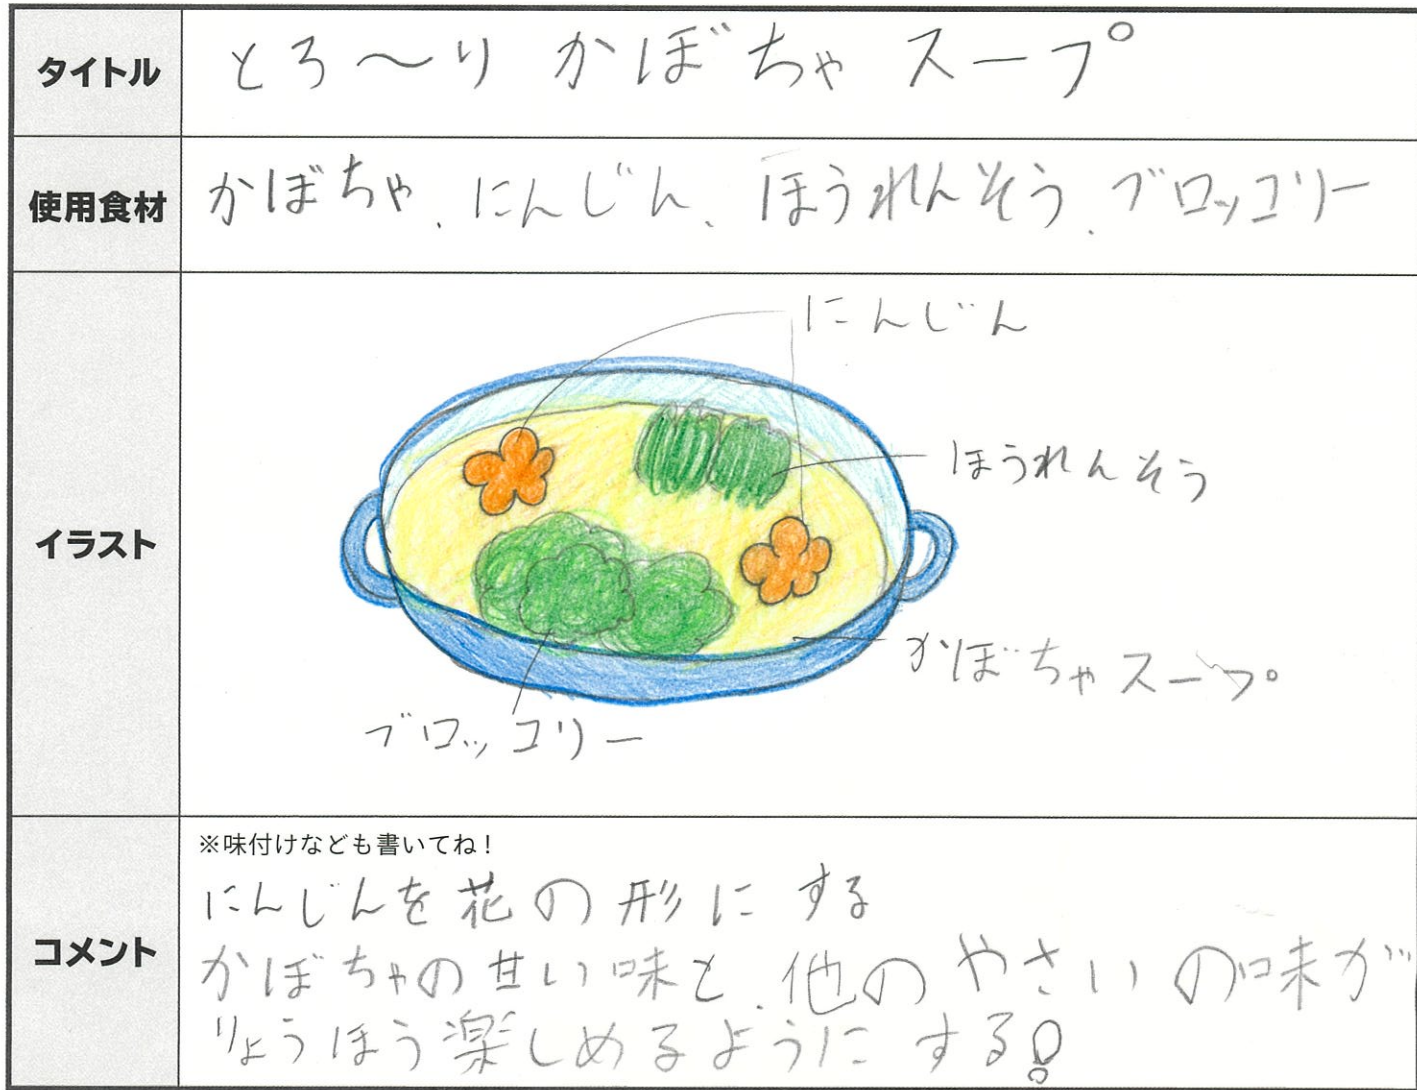 タイトル
とろ〜り かぼちゃ スープ
使用食材
かぼちゃ、にんじん、ほうれんそう、ブロッコリー
イラスト
にんじん
ほうれんそう
かぼちゃスープ
ブロッコリー
コメント
※味付けなども書いてね!
にんじんを花の形にする
かぼちゃの甘い味と、他のやさいの味が
りょうほう楽しめるようにする!